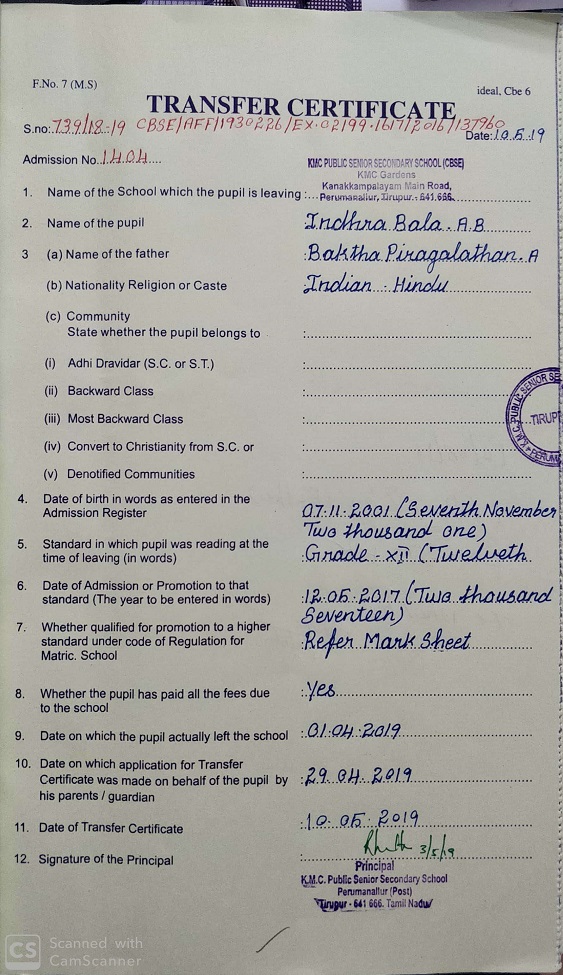 F.No. 7 (M.S)
ideal, Cbe 6
TRANSFER CERTIFICATE
S.no: 739/18-19 CBSE/AFF/1930226/EX-02199-1617/2016/137960
Date: 10.5.19
Admission No. 1404
KMC PUBLIC SENIOR SECONDARY SCHOOL (CBSE)
KMC Gardens
Kanakkampalayam Main Road,
1. Name of the School which the pupil is leaving : Perumanallur, Tirupur - 641 666.
2. Name of the pupil Indhra Bala. A.B
3 (a) Name of the father : Baktha Piragalathan. A
(b) Nationality Religion or Caste : Indian - Hindu
(c) Community
State whether the pupil belongs to :
(i) Adhi Dravidar (S.C. or S.T.) :
(ii) Backward Class :
(iii) Most Backward Class :
K.M.C. PUBLIC SENIOR SE
TIRUP
PERUMA
(iv) Convert to Christianity from S.C. or :
(v) Denotified Communities :
4. Date of birth in words as entered in the
Admission Register
07.11.2001 (Seventh November
Two thousand one)
5. Standard in which pupil was reading at the
time of leaving (in words)
: Grade - XII (Twelveth
6. Date of Admission or Promotion to that
standard (The year to be entered in words)
: 12.05.2017 (Two thousand
Seventeen)
7. Whether qualified for promotion to a higher
standard under code of Regulation for
Matric. School
: Refer Mark Sheet
8. Whether the pupil has paid all the fees due
to the school
: Yes
9. Date on which the pupil actually left the school : 01.04.2019
10. Date on which application for Transfer
Certificate was made on behalf of the pupil by
his parents / guardian
: 29.04.2019
11. Date of Transfer Certificate : 10.05.2019
12. Signature of the Principal :
3/5/19
Principal
K.M.C. Public Senior Secondary School
Perumanallur (Post)
Tirupur - 641 666. Tamil Nadu
CS Scanned with
CamScanner